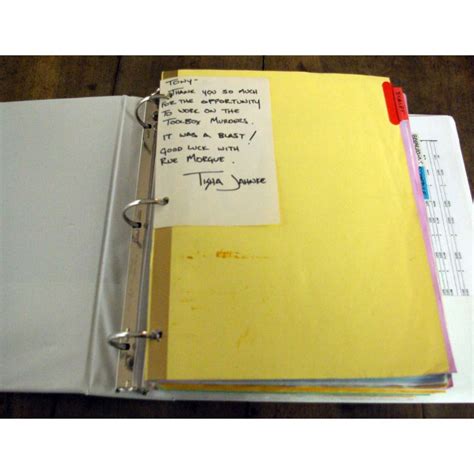 TONY-
THANK YOU SO MUCH
FOR THE OPPORTUNITY
TO WORK ON THE
TOOLBOX MURDERS.
IT WAS A BLAST!
GOOD LUCK WITH
RUE MORGUE.
TISHA JAHNKE